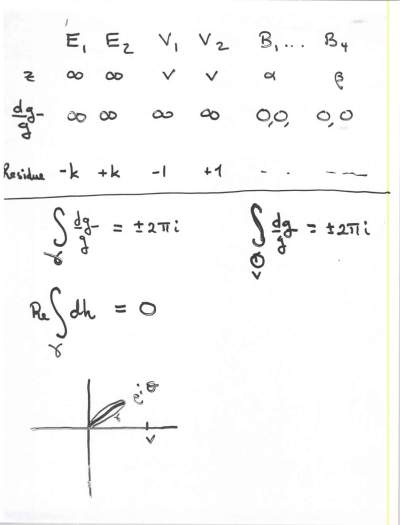 E₁ E₂ V₁ V₂ B₁... B₄
z ∞ ∞ v v α β
dg/g ∞ ∞ ∞ ∞ 0,0, 0,0
Residue -k +k -1 +1 . . —
∫γ dg/g = ±2πi ∫v dg/g = ±2πi
Re ∫γ dh = 0
e^{iθ}
v